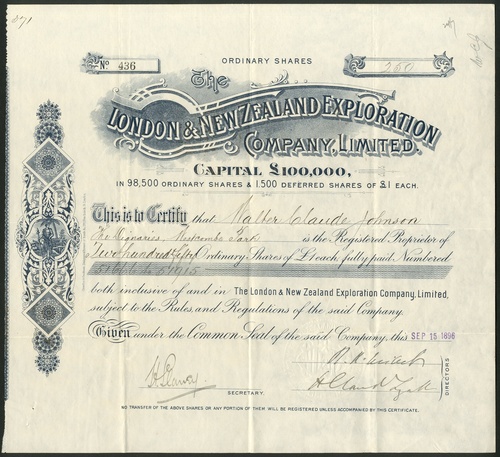 271
ORDINARY SHARES
No. 436
250
The
LONDON & NEW ZEALAND EXPLORATION
COMPANY, LIMITED.
CAPITAL £100,000,
IN 98,500 ORDINARY SHARES & 1,500 DEFERRED SHARES OF £1 EACH.
This is to Certify that Walter Claude Johnson
is the Registered Proprietor of
Two hundred & fifty Ordinary Shares of £1 each, fully paid, Numbered
both inclusive of and in The London & New Zealand Exploration Company, Limited,
subject to the Rules, and Regulations of the said Company.
Given under the Common Seal of the said Company, this SEP 15 1896
DIRECTORS
SECRETARY.
NO TRANSFER OF THE ABOVE SHARES OR ANY PORTION OF THEM WILL BE REGISTERED UNLESS ACCOMPANIED BY THIS CERTIFICATE.